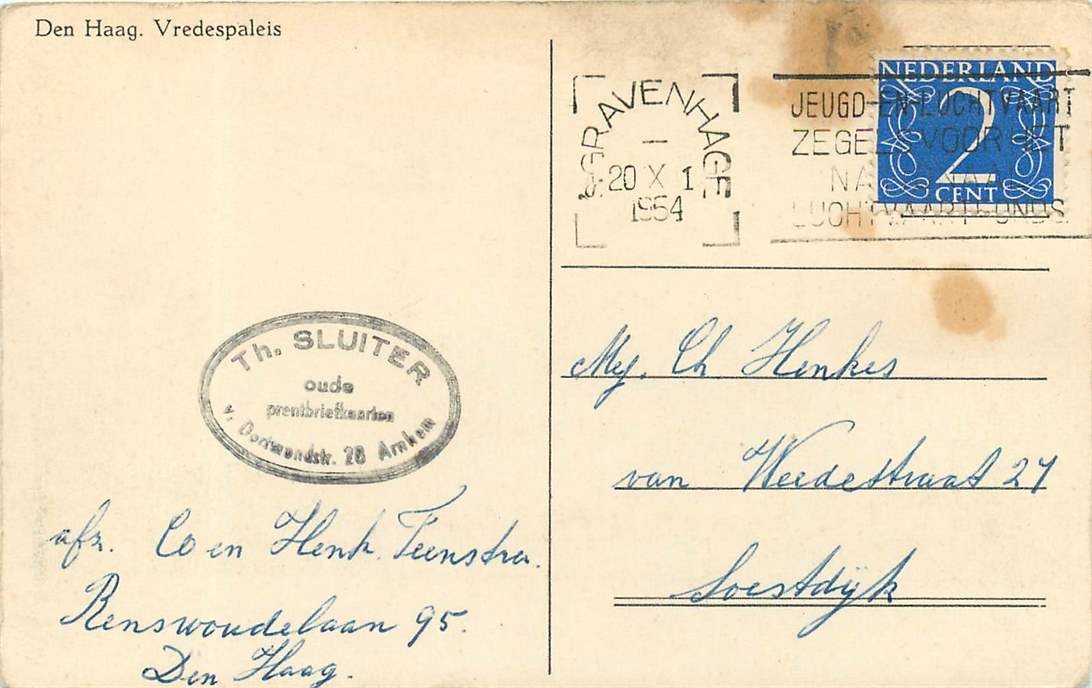 Den Haag. Vredespaleis
'S-GRAVENHAGE
20 X 1
1954
JEUGD-EN-LUCHTVAART
ZEGELS VOOR HET
NATIONAAL
LUCHTVAARTFONDS
NEDERLAND
2
CENT
Th. SLUITER
oude
prentbriefkaarten
v. Dortmondstr. 28 Arnhem
Mej. Ch Henkes
van Weedestraat 27
Soestdijk
afz. Co en Henk Feenstra.
Renswoudelaan 95.
Den Haag.